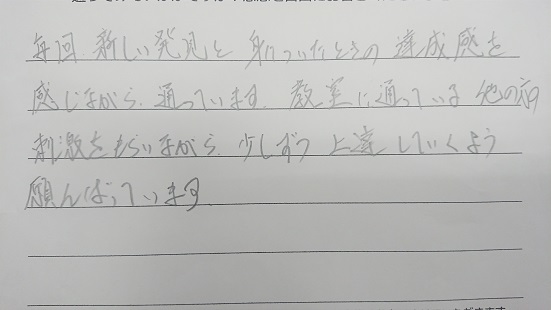 毎回 新しい発見と 身についたときの 達成感を
感じながら、通っています。教室に通っている 他の方の
刺激をもらいながら、少しずつ 上達していくよう
願んばっています